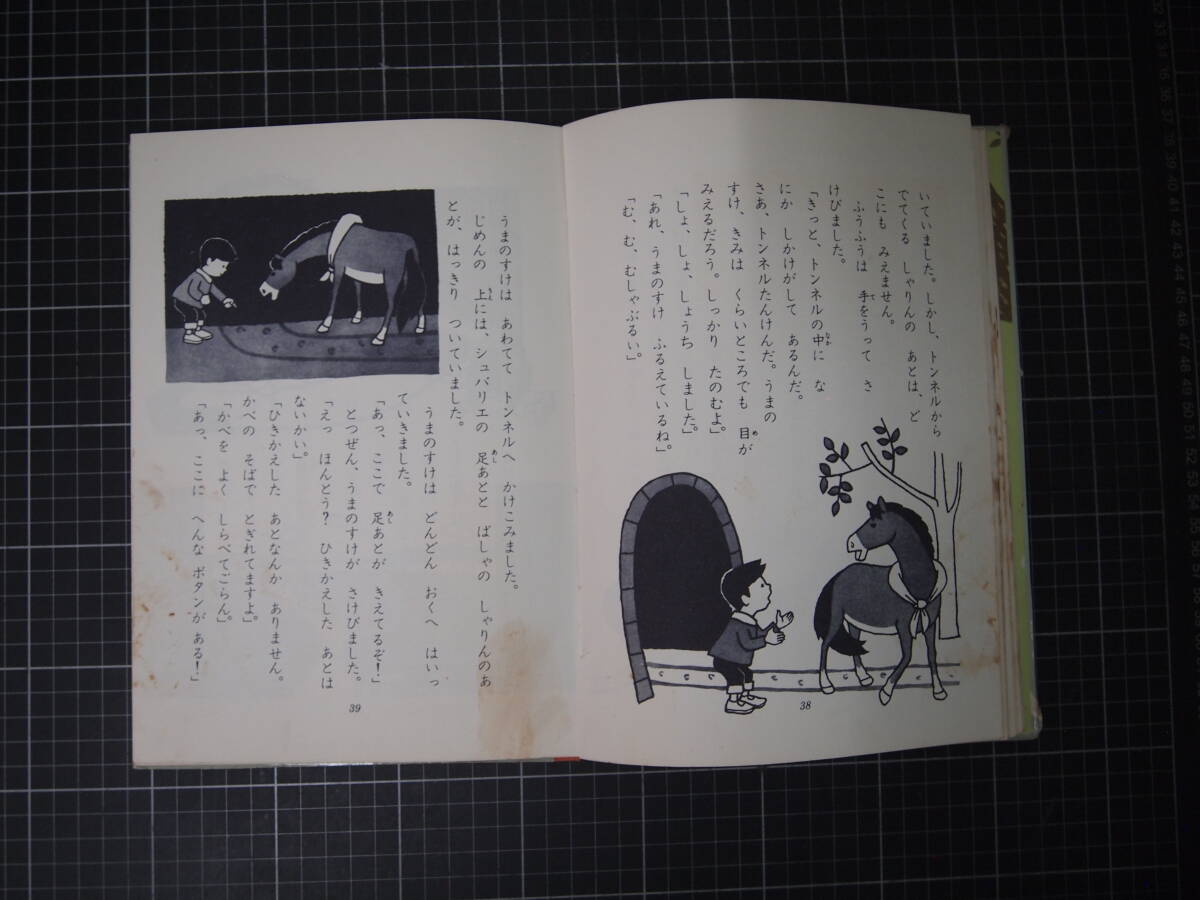 いていました。しかし、トンネルから
でてくる しゃりんの あとは、ど
こにも みえません。
ふうふうは 手をうって さ
けびました。
「きっと、トンネルの中に な
にか しかけがして あるんだ。
さあ、トンネルたんけんだ。うまの
すけ、きみは くらいところでも 目が
みえるだろう。しっかり たのむよ」
「しょ、しょ、しょうち しました」
「あれ、うまのすけ ふるえているね。」
「む、む、むしゃぶるい」。
38
うまのすけは あわてて トンネルへ かけこみました。
じめんの 上には、シュバリエの 足あとと ばしゃの しゃりんのあ
とが、はっきり ついていました。
うまのすけは どんどん おくへ はいっ
ていきました。
「あっ、ここで 足あとが きえてるぞ!」
とつぜん、うまのすけが さけびました。
「えっ ほんとう? ひきかえした あとは
ないかい」
「ひきかえした あとなんか ありません。
かべの そばで とぎれてますよ」
「かべを よく しらべてごらん」
「あっ、ここに へんな ボタンが ある!」
39